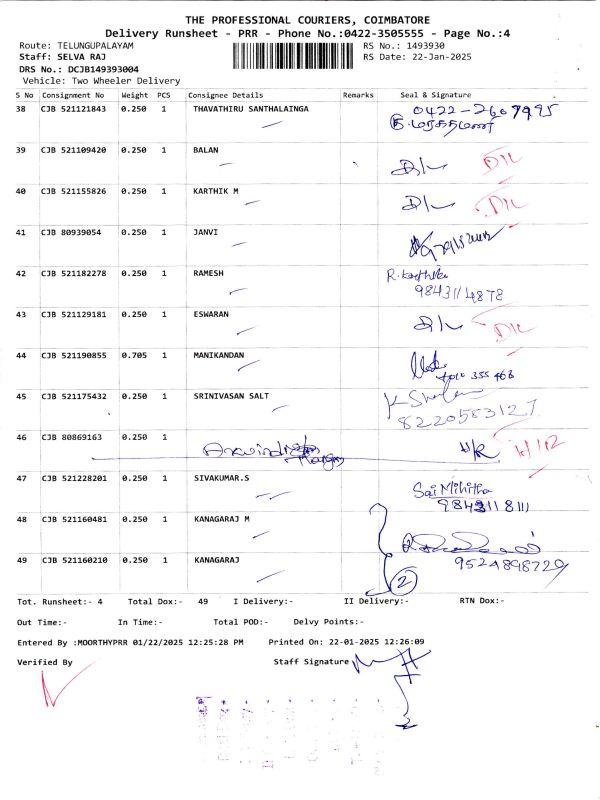 THE PROFESSIONAL COURIERS, COIMBATORE
Delivery Runsheet - PRR - Phone No.:0422-3505555 - Page No.:4
Route: TELUNGUPALAYAM RS No.: 1493930
Staff: SELVA RAJ RS Date: 22-Jan-2025
DRS No.: DCJB149393004
Vehicle: Two Wheeler Delivery
S No Consignment No Weight PCS Consignee Details Remarks Seal & Signature
38 CJB 521121843 0.250 1 THAVATHIRU SANTHALAINGA 0422-2607995
39 CJB 521109420 0.250 1 BALAN D/L D/L
40 CJB 521155826 0.250 1 KARTHIK M D/L D/L
41 CJB 80939054 0.250 1 JANVI
42 CJB 521182278 0.250 1 RAMESH R. Karthika
9843114878
43 CJB 521129181 0.250 1 ESWARAN D/L D/L
44 CJB 521190855 0.705 1 MANIKANDAN
355 468
45 CJB 521175432 0.250 1 SRINIVASAN SALT
8220583127
46 CJB 80869163 0.250 1
47 CJB 521228201 0.250 1 SIVAKUMAR.S Sai Mihitha
9843118111
48 CJB 521160481 0.250 1 KANAGARAJ M
49 CJB 521160210 0.250 1 KANAGARAJ 9524898729
2
Tot. Runsheet:- 4 Total Dox:- 49 I Delivery:- II Delivery:- RTN Dox:-
Out Time:- In Time:- Total POD:- Delvy Points:-
Entered By :MOORTHYPRR 01/22/2025 12:25:28 PM Printed On: 22-01-2025 12:26:09
Verified By Staff Signature